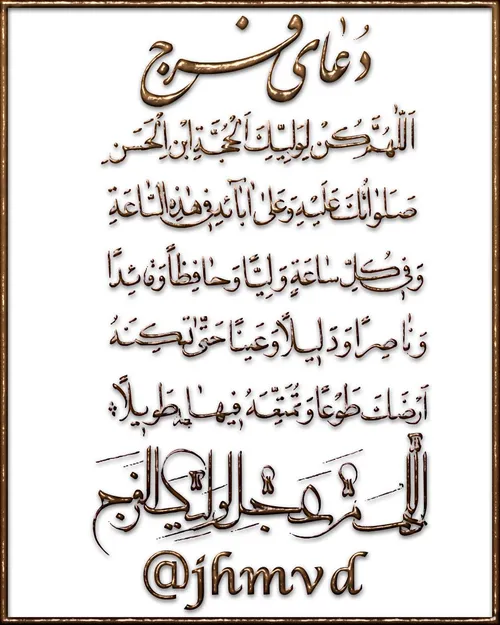 دُعای فرج
اَللّٰهُمَّ كُنْ لِوَلِيِّكَ الْحُجَّةِ ابْنِ الْحَسَنِ
صَلَوٰاتُكَ عَلَيْهِ وَعَلىٰ اٰبٰائِهِ في هٰذِهِ السّٰاعَةِ
وَفي كُلِّ سٰاعَةٍ وَلِيًّا وَحٰافِظاً وَقٰائِدًا
وَنٰاصِرًا وَدَليلاً وَعَيْنًا حَتّٰى تُسْكِنَهُ
اَرْضَكَ طَوْعًا وَتُمَتِّعَهُ فيهٰا طَويلاً
اللهم عجل لولیک الفرج
@jhmvd